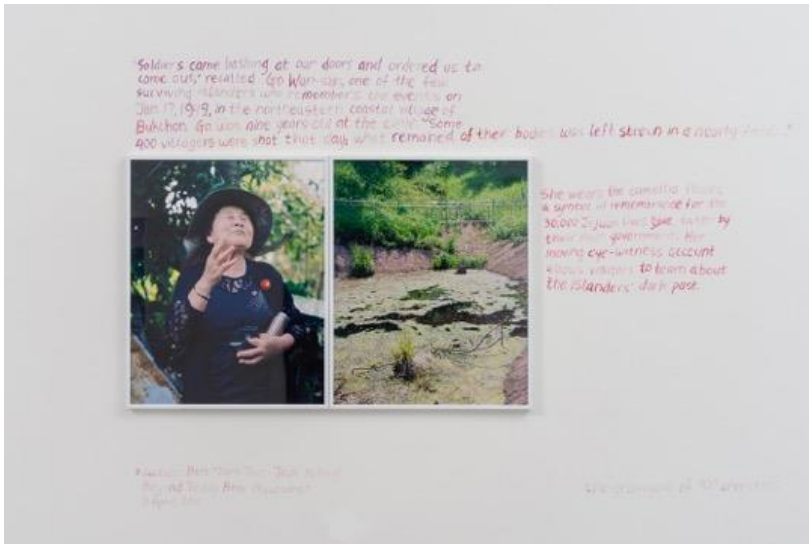 "Soldiers came bashing at our doors and ordered us to
come out," recalled Go Wan-soon, one of the few
surviving islanders who remembers the events on
Jan 17, 1949, in the northeastern coastal village of
Bukchon. Go was nine years old at the time. "Some
400 villagers were shot that day, what remained of their bodies was left strewn in a nearby field..."
She wears the camellia flower,
a symbol of remembrance for the
30,000 Jeju lives taken by
their own government. Her
moving eye-witness account
allows visitors to learn about
the islanders' dark past.